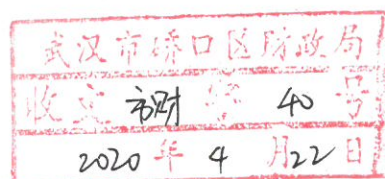 武汉市硚口区财政局
收文 市财 字 40 号
2020 年 4 月 22 日